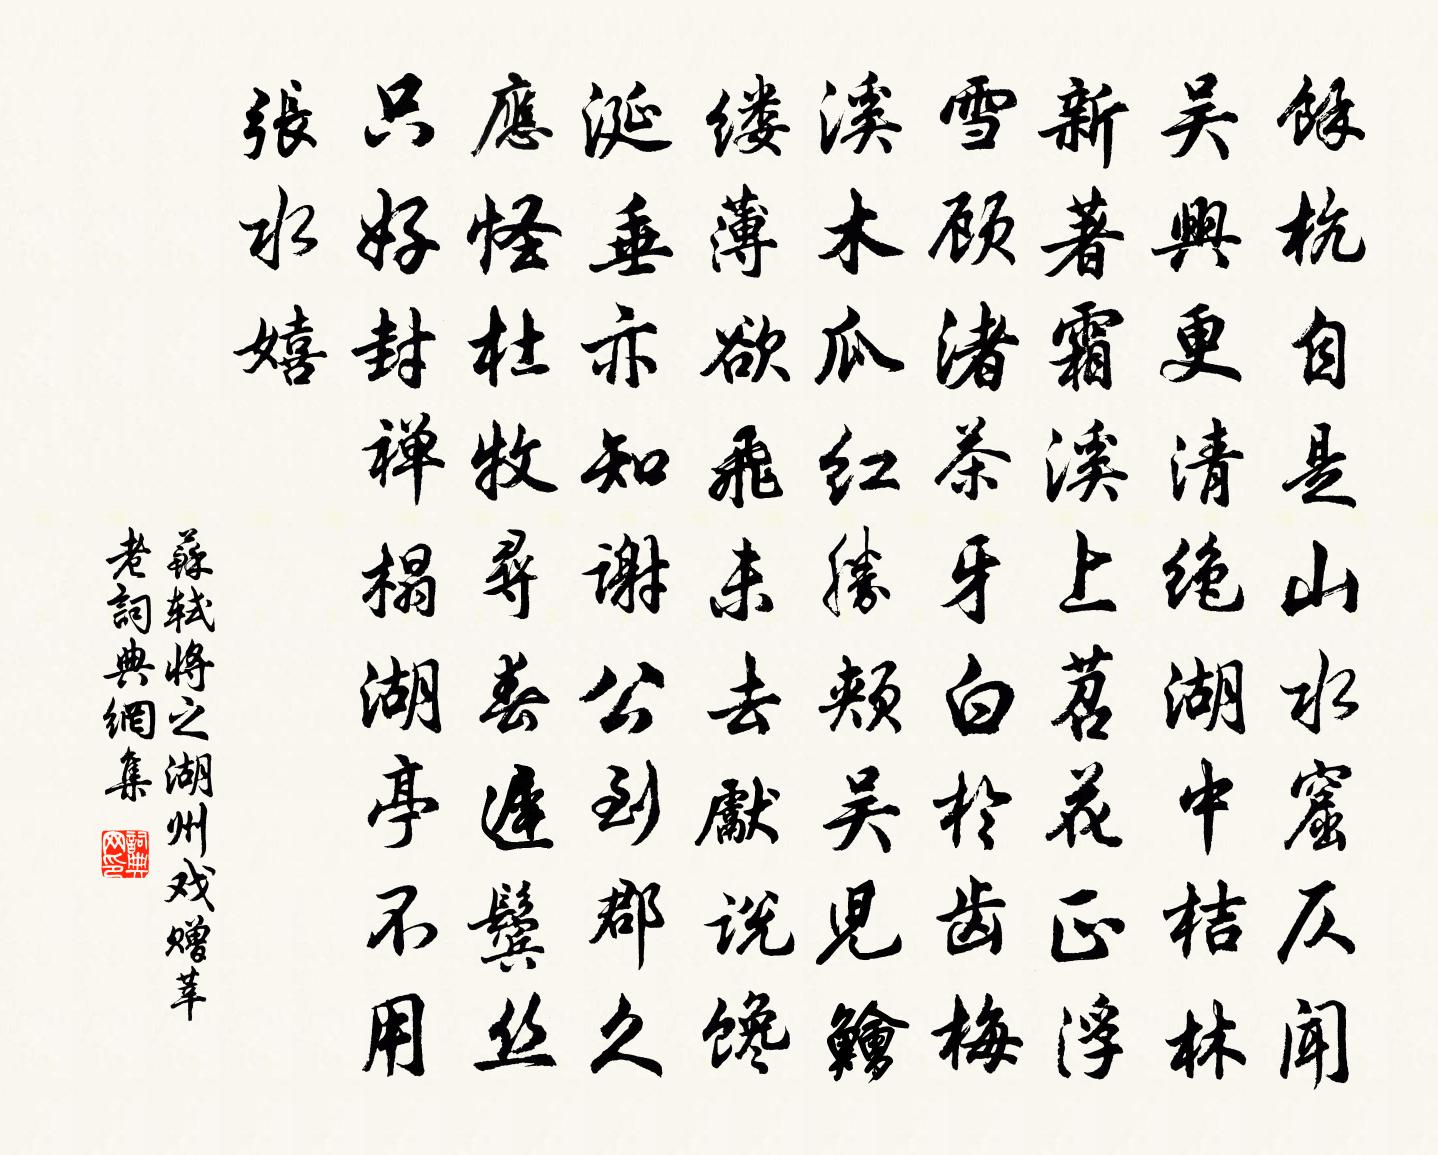 餘杭自是山水窟仄聞
吴興更清绝湖中桔林
新著霜溪上苕花正浮
雪顾渚茶牙白於齿梅
溪木瓜红勝颊吴兒鱠
缕薄欲飛未去獻说馋
涎垂亦知谢公到郡久
應怪杜牧尋春遲鬓丝
只好封禅榻湖亭不用
張水嬉
蘇轼将之湖州戏赠莘
老詞典網集
詞典
网印